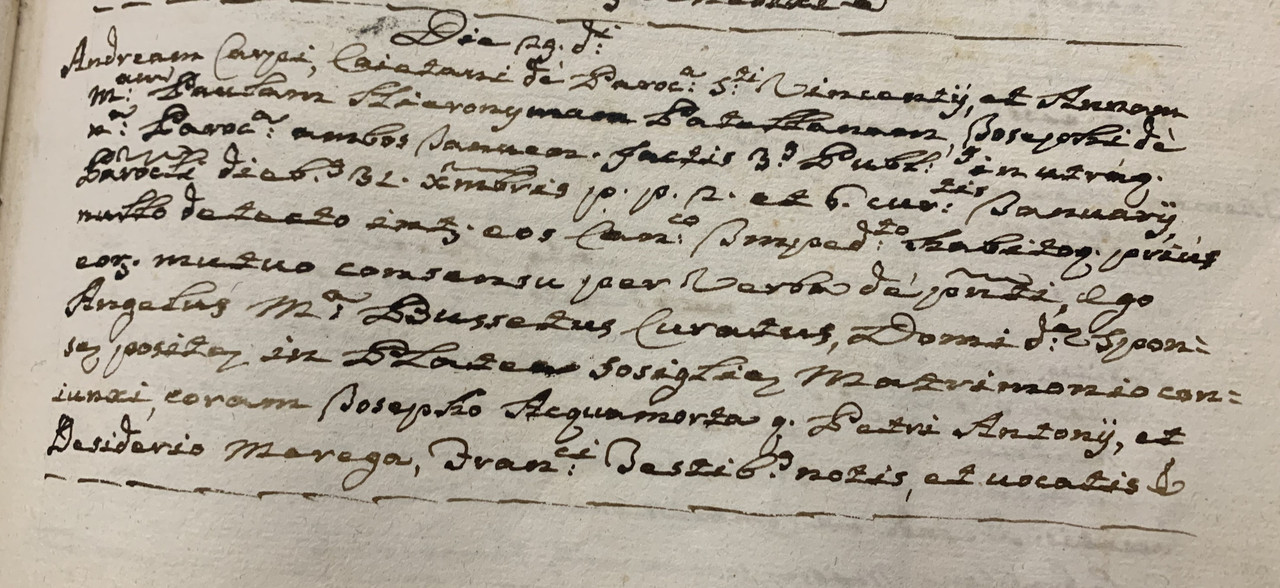 Die 29. d.i
Andream Carpi, Caietani de Paroc.a S.ti Vincentij, et Annam
M.am Paulam Hieronymam Patellanam, Josephi dè
n.a Paroc.a ambos Januen. factis 3.s Publ.s in utráq.
Parocli dieb.s 31. Xmbris p. p. 2. et 6. cur.tis Januarij
nullo detecto int. eos Can.co Imped.to habitoq. priús
eor. mutuo consensu per Verba dè pnti, Ego
Angelus M.a Bussetus Curatus, Domi d.ae Spon=
sę positę in Platea Sosiglię Matrimonio con=
iunxi, coram Josepho Acquamorta q. Petri Antonij, et
Desiderio Marega, Fran.ci Testib.s notis, et vocatis